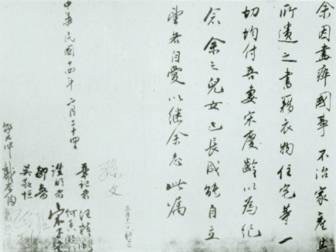 余因盡瘁國事不治家產
所遺之書籍衣物住宅等一
切均付吾妻宋慶齡以為紀
念余之兒女已長成能自立
望各自愛以繼余志此囑
孫文
中華民國十四年二月二十四
筆記者 汪精
證明者 宋子文
鄒魯
吳敬恒